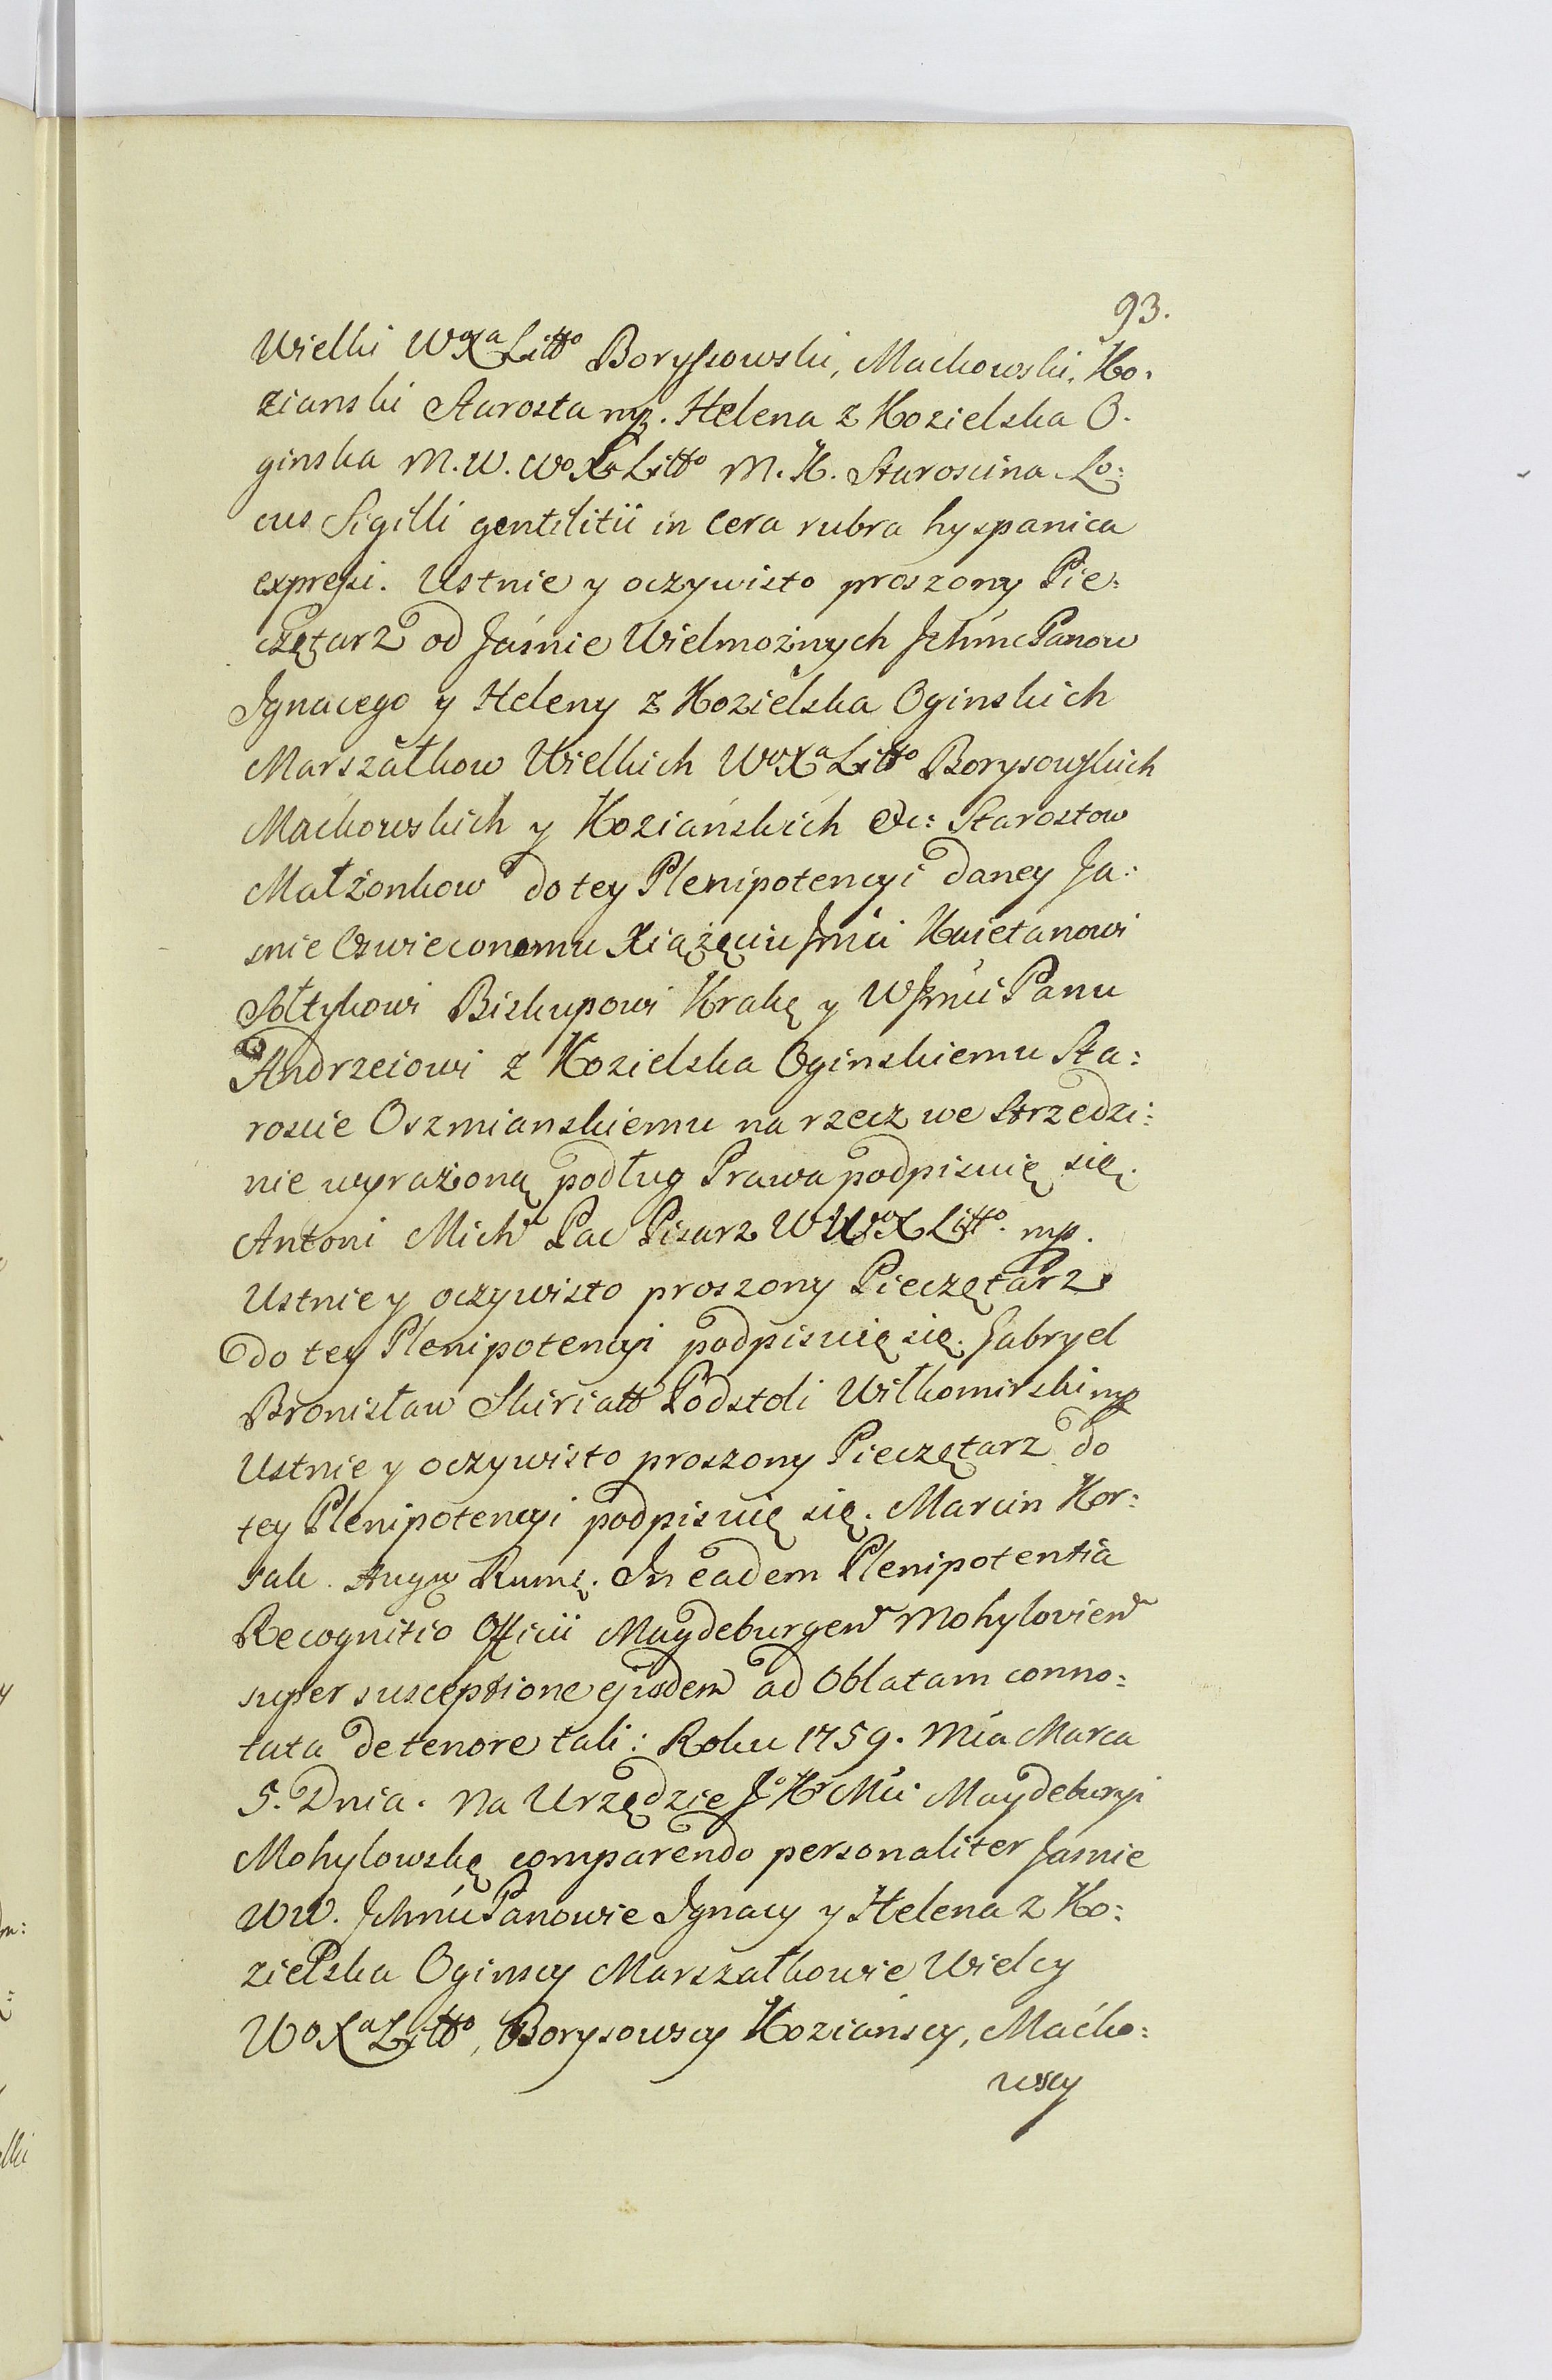 93.
Wielki WoXa Litto Boryssowski, Mackowski, Ko.
zianski Starosta mp. Helena z Kozielska O.
ginska M. W. WoXa Litto M. K. Staroscina Lo:
cus Sigilli gentilitii in Cera rubra hyspanica
expressi. Ustnie y oczywisto proszony Pie:
czętarz od Jaśnie Wielmożnych Ichmc Panow
Ignacego y Heleny z Kozielska Oginskich
Marszałkow Wielkich WoXa Litto Borysowskich
Maćkowskich y Koziańskich &c: Starostow
Małżonkow do tey Plenipotencyi daney Ja:
snie Oswieconemu Xiążęciu Jmći Kaietanowi
Sołtykowi Biskupowi Krakę y WJmći Panu
Andrzeiowi z Kozielska Oginskiemu Sta:
roscie Oszmianskiemu na rzecz we strzedzi:
nie wyrażoną podług Prawa podpisuię się.
Antoni Mich Pac Pisarz W WoX Litto. mp.
Ustnie y oczywisto proszony Pieczętarz
do tey Plenipotencyi podpisuię się. Gabryel
Bronisław Skiriatt Podstoli Wiłkomirski mp
Ustnie y oczywisto proszony Pieczętarz do
tey Plenipotencyi podpisuię się. Marcin Kor:
sak. In eadem Plenipotentia
Recognitio Officii Magdeburgen Mohylovien
super susceptione ejusdem ad Oblatam conno:
tata de tenore tali: Roku 1759. Mca Marca
5. Dnia. Na Urzędzie Jo Kr Mći Maydeburyi
Mohylowskę comparendo personaliter Jasnie
WW. Ichmć Panowie Ignacy y Helena z Ko:
zielska Oginscy Marszałkowie Wielcy
WoXa Litto, Borysowscy Koziańscy, Maćko:
wscy